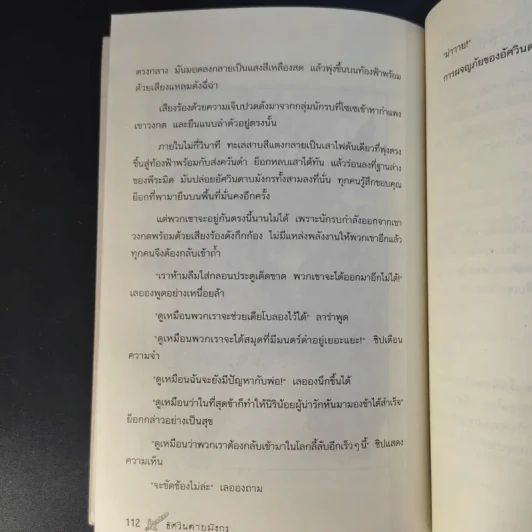 ตรงกลาง มันมอดลงกลายเป็นแสงสีเหลืองสด แล้วพุ่งขึ้นบนท้องฟ้าพร้อม
ด้วยเสียงแหลมดังฉี่ฉ่า
เสียงร้องด้วยความเจ็บปวดดังมาจากกลุ่มนักรบที่โซเซเข้าหากำแพง
เขาวงกต และยืนแนบลำตัวอยู่ตรงนั้น
ภายในไม่กี่วินาที ทะเลสาบสีแดงกลายเป็นเสาไฟต้นเดียวที่พุ่งตรง
ขึ้นสู่ท้องฟ้าพร้อมกับส่งควันดำ ย็อกหลบเสาได้ทัน แล้วร่อนลงที่ฐานล่าง
ของพีระมิด มันปล่อยอัศวินดาบมังกรทั้งสามลงที่นั่น ทุกคนรู้สึกขอบคุณ
ย็อกที่พามายืนบนพื้นที่มั่นคงอีกครั้ง
แต่พวกเขาจะอยู่กันตรงนี้นานไม่ได้ เพราะนักรบกำลังออกจากเขา
วงกตพร้อมด้วยเสียงร้องดังกึกก้อง ไม่มีแหล่งพลังงานให้พวกเขาอีกแล้ว
ทุกคนจึงต้องกลับเข้าถ้ำ
"เราห้ามลืมใส่กลอนประตูเด็ดขาด พวกเขาจะได้ออกมาอีกไม่ได้!"
เลอองพูดอย่างเหนื่อยล้า
"ดูเหมือนพวกเราจะช่วยเดียโบลองไว้ได้" ลาร่าพูด
"ดูเหมือนพวกเราจะได้สมุดที่มีมนตร์ดำอยู่เยอะแยะ!" ชิปเตือน
ความจำ
"ดูเหมือนฉันจะยังมีปัญหากับพ่อ!" เลอองนึกขึ้นได้
"ดูเหมือนว่าในที่สุดข้าก็ทำให้นิรีน้อยผู้น่ารักหันมามองข้าได้สำเร็จ"
ย็อกกล่าวอย่างเป็นสุข
"ดูเหมือนว่าพวกเราต้องกลับเข้ามาในโลกลี้ลับอีกเร็วๆ นี้" ชิปแสดง
ความเห็น
"จะขัดข้องไม่ล่ะ" เลอองถาม
112 อัศวินดาบมังกร
"ม่าาาย!"
การผจญภัยของอัศวินดา